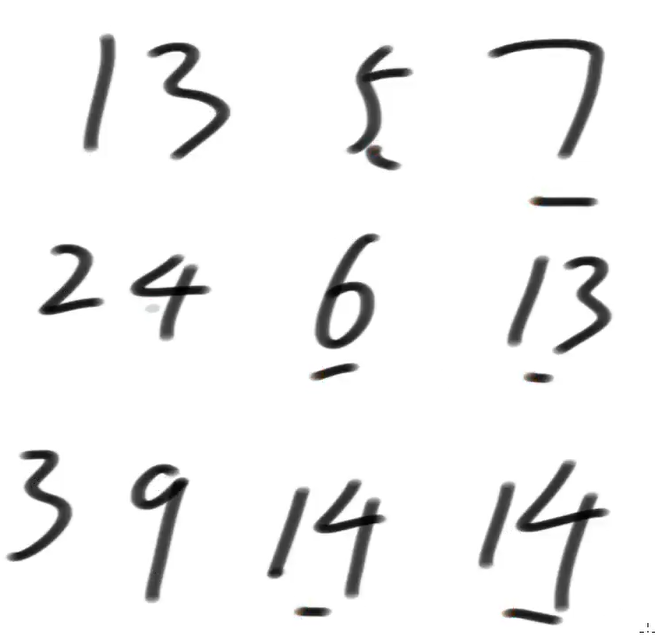 1 3 5 7
2 4 6 13
3 9 14 14